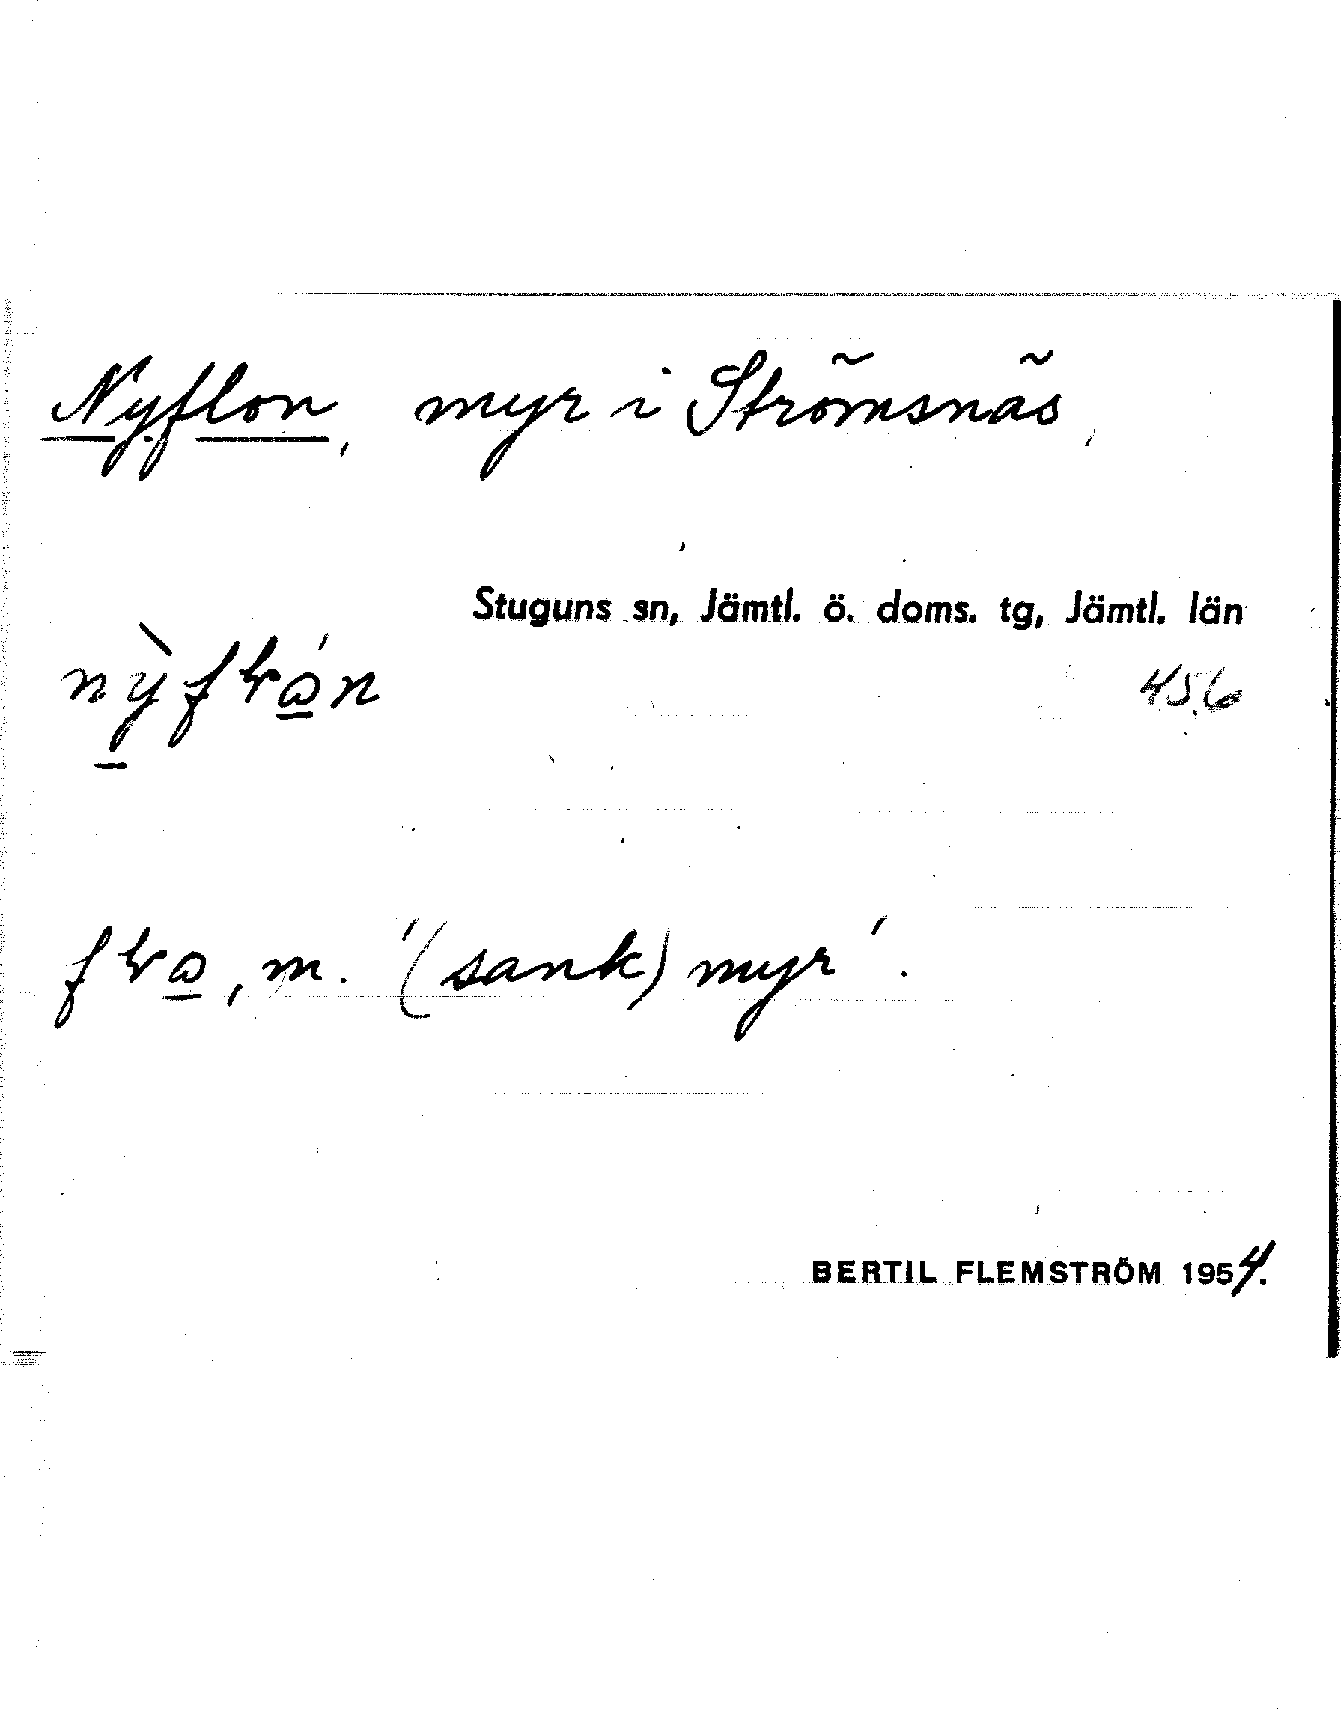 Nyflon, myr i Strömsnäs,
Stuguns sn, Jämtl. ö. doms. tg, Jämtl. län
456
BERTIL FLEMSTRÖM 1954.
m. '(sank) myr'.